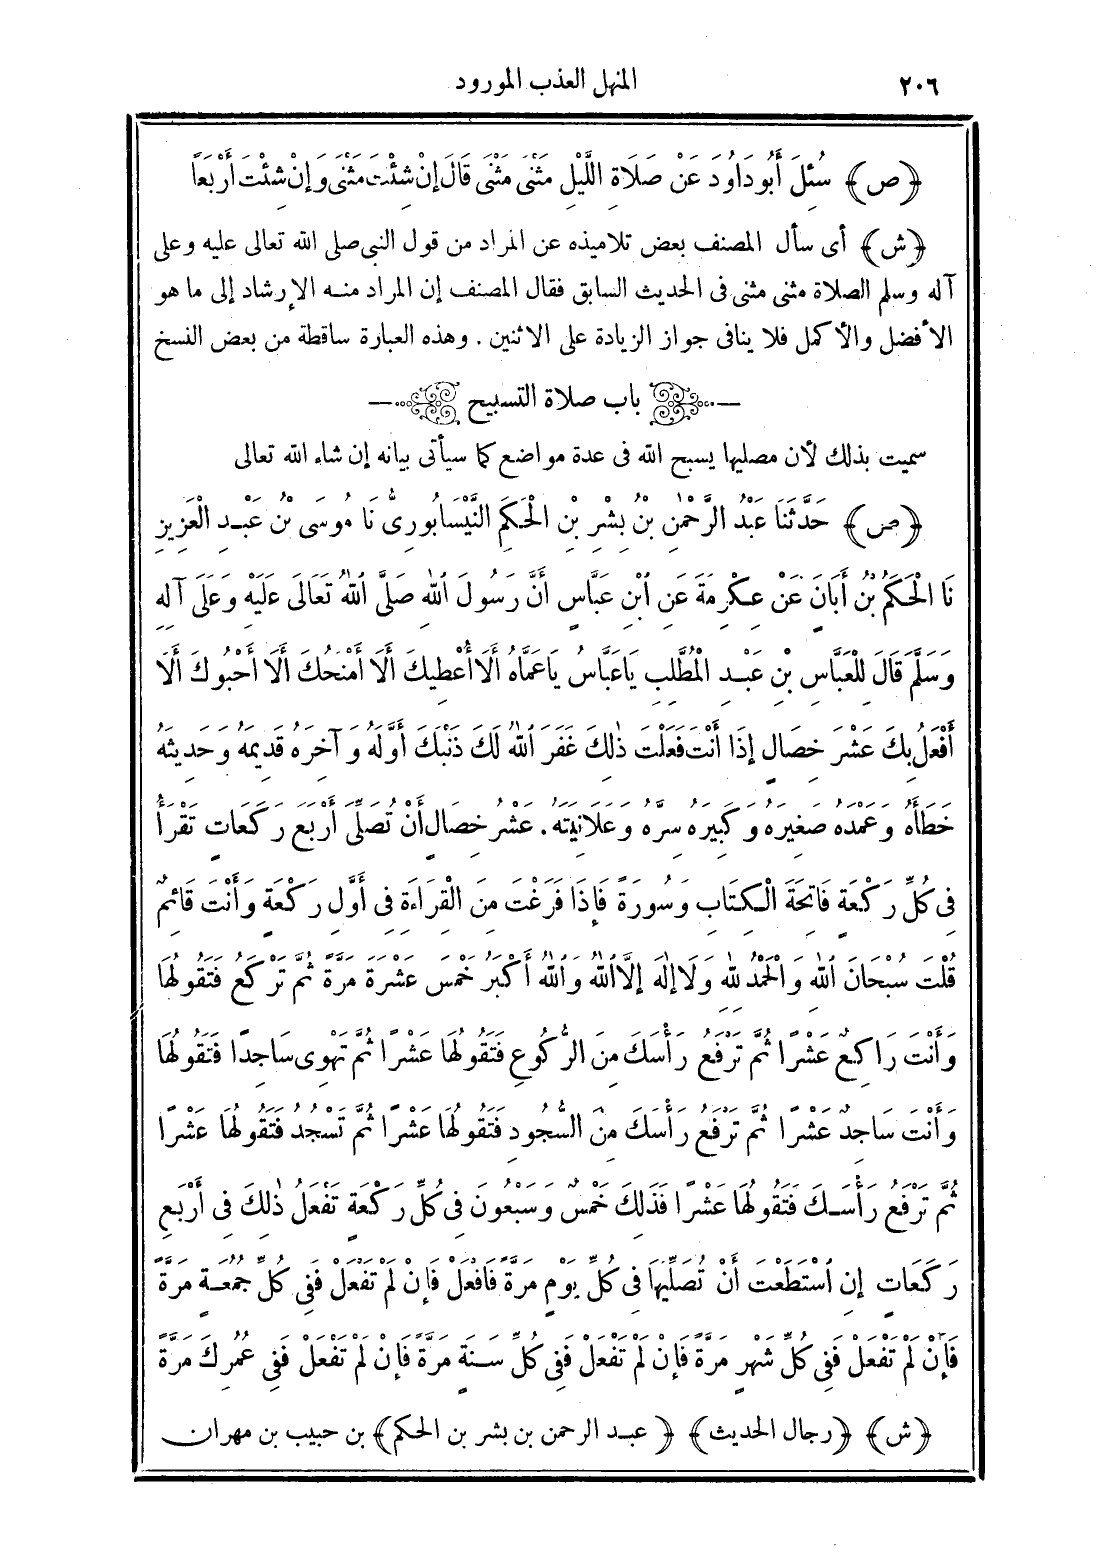 ٢٠٦ المنهل العذب المورود
﴿ص﴾ سُئِلَ أَبُو دَاوُدَ عَنْ صَلَاةِ اللَّيْلِ مَثْنَى مَثْنَى قَالَ إِنْ شِئْتَ مَثْنَى وَإِنْ شِئْتَ أَرْبَعًا
﴿ش﴾ أى سأل المصنف بعض تلاميذه عن المراد من قول النبى صلى الله تعالى عليه وعلى
آله وسلم الصلاة مثنى مثنى فى الحديث السابق فقال المصنف إن المراد منه الإرشاد إلى ما هو
الأفضل والأكمل فلا ينافى جواز الزيادة على الاثنين . وهذه العبارة ساقطة من بعض النسخ
باب صلاة التسبيح
سميت بذلك لأن مصليها يسبح الله فى عدة مواضع كما سيأتى بيانه إن شاء الله تعالى
﴿ص﴾ حَدَّثَنَا عَبْدُ الرَّحْمٰنِ بْنُ بِشْرِ بْنِ الْحَكَمِ النَّيْسَابُورِىُّ نَا مُوسَى بْنُ عَبْدِ الْعَزِيزِ
نَا الْحَكَمُ بْنُ أَبَانَ عَنْ عِكْرِمَةَ عَنِ ابْنِ عَبَّاسٍ أَنَّ رَسُولَ اللهِ صَلَّى اللهُ تَعَالَى عَلَيْهِ وَعَلَى آلِهِ
وَسَلَّمَ قَالَ لِلْعَبَّاسِ بْنِ عَبْدِ الْمُطَّلِبِ يَاعَبَّاسُ يَاعَمَّاهُ أَلَا أُعْطِيكَ أَلَا أَمْنَحُكَ أَلَا أَحْبُوكَ أَلَا
أَفْعَلُ بِكَ عَشْرَ خِصَالٍ إِذَا أَنْتَ فَعَلْتَ ذٰلِكَ غَفَرَ اللهُ لَكَ ذَنْبَكَ أَوَّلَهُ وَآخِرَهُ قَدِيمَهُ وَحَدِيثَهُ
خَطَأَهُ وَعَمْدَهُ صَغِيرَهُ وَكَبِيرَهُ سِرَّهُ وَعَلَانِيَتَهُ . عَشْرُ خِصَالٍ أَنْ تُصَلِّىَ أَرْبَعَ رَكَعَاتٍ تَقْرَأُ
فِى كُلِّ رَكْعَةٍ فَاتِحَةَ الْكِتَابِ وَسُورَةً فَإِذَا فَرَغْتَ مِنَ الْقِرَاءَةِ فِى أَوَّلِ رَكْعَةٍ وَأَنْتَ قَائِمٌ
قُلْتَ سُبْحَانَ اللهِ وَالْحَمْدُ لِلهِ وَلَا إِلٰهَ إِلَّا اللهُ وَاللهُ أَكْبَرُ خَمْسَ عَشْرَةَ مَرَّةً ثُمَّ تَرْكَعُ فَتَقُولُهَا
وَأَنْتَ رَاكِعٌ عَشْرًا ثُمَّ تَرْفَعُ رَأْسَكَ مِنَ الرُّكُوعِ فَتَقُولُهَا عَشْرًا ثُمَّ تَهْوِى سَاجِدًا فَتَقُولُهَا
وَأَنْتَ سَاجِدٌ عَشْرًا ثُمَّ تَرْفَعُ رَأْسَكَ مِنَ السُّجُودِ فَتَقُولُهَا عَشْرًا ثُمَّ تَسْجُدُ فَتَقُولُهَا عَشْرًا
ثُمَّ تَرْفَعُ رَأْسَكَ فَتَقُولُهَا عَشْرًا فَذَلِكَ خَمْسٌ وَسَبْعُونَ فِى كُلِّ رَكْعَةٍ تَفْعَلُ ذٰلِكَ فِى أَرْبَعِ
رَكَعَاتٍ إِنِ اسْتَطَعْتَ أَنْ تُصَلِّيَهَا فِى كُلِّ يَوْمٍ مَرَّةً فَافْعَلْ فَإِنْ لَمْ تَفْعَلْ فَفِى كُلِّ جُمُعَةٍ مَرَّةً
فَإِنْ لَمْ تَفْعَلْ فَفِى كُلِّ شَهْرٍ مَرَّةً فَإِنْ لَمْ تَفْعَلْ فَفِى كُلِّ سَنَةٍ مَرَّةً فَإِنْ لَمْ تَفْعَلْ فَفِى عُمُرِكَ مَرَّةً
﴿ش﴾ ﴿رجال الحديث﴾ ﴿عبد الرحمن بن بشر بن الحكم﴾ بن حبيب بن مهران